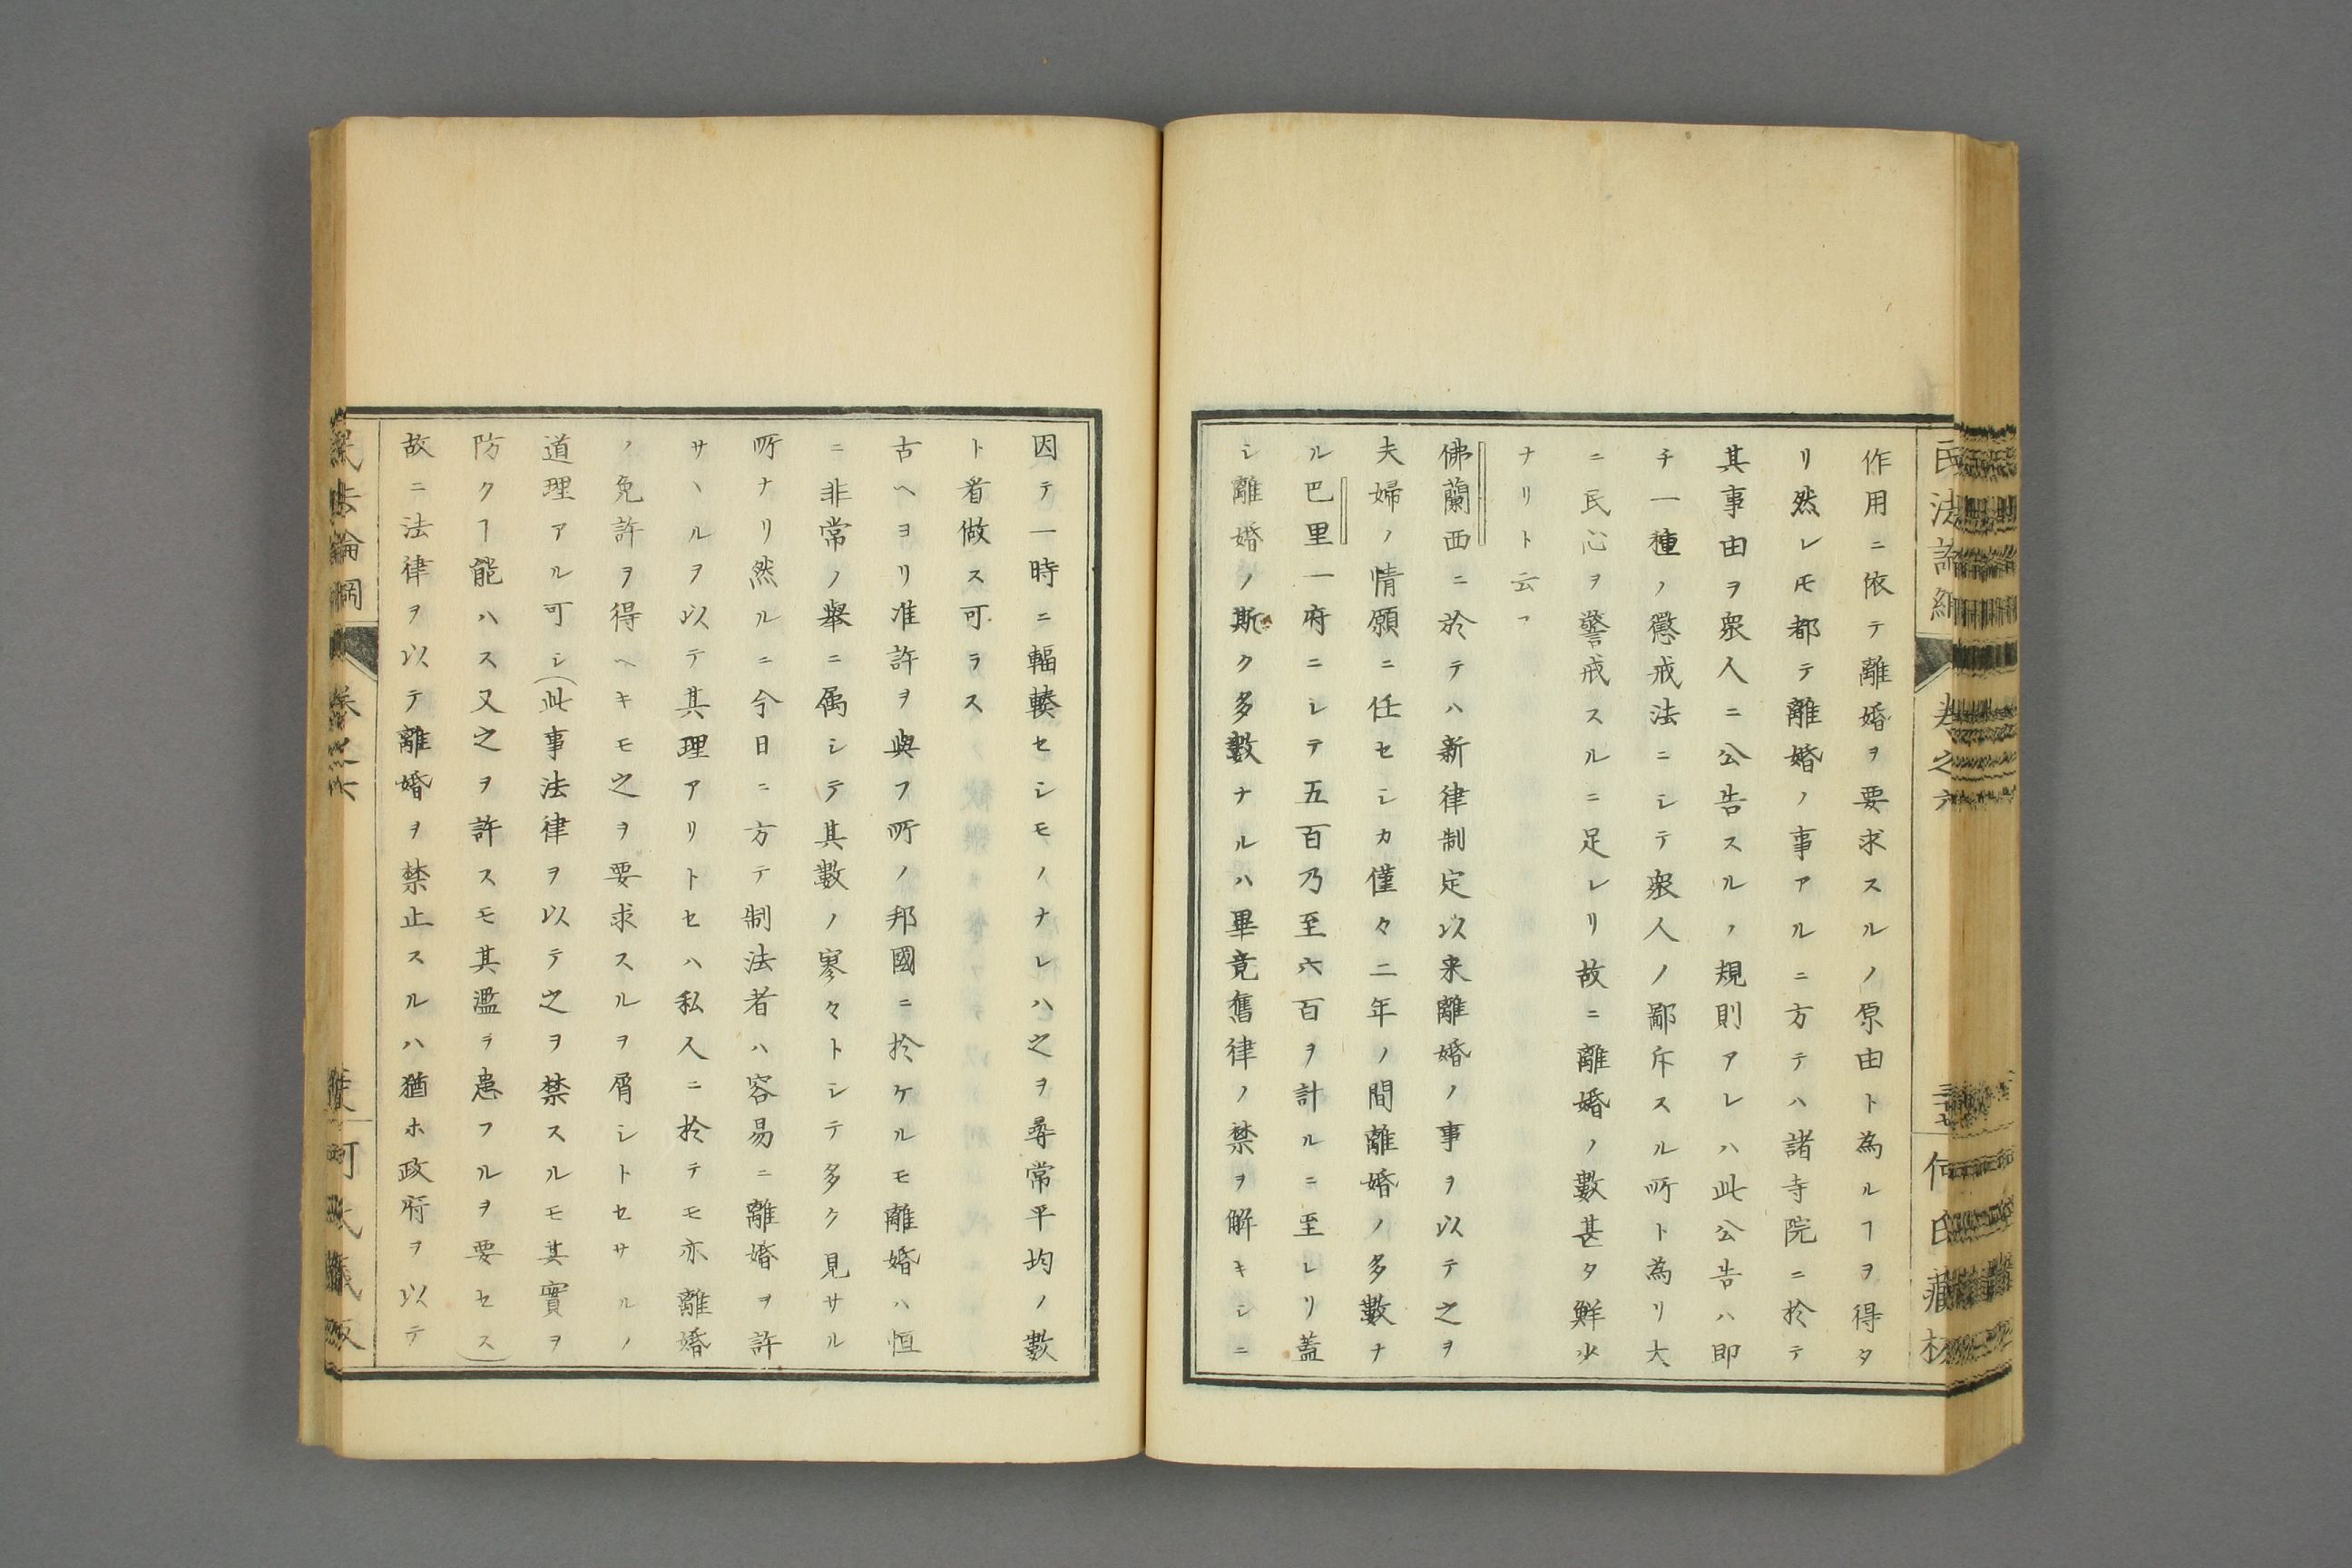 作用ニ依テ離婚ヲ要求スルノ原由ト為ルヿヲ得タ
リ然レモ都テ離婚ノ事アルニ方テハ諸寺院ニ於テ
其事由ヲ衆人ニ公告スルノ規則アレハ此公告ハ即
チ一種ノ懲戒法ニシテ衆人ノ鄙斥スル所ト為リ大
ニ民心ヲ警戒スルニ足レリ故ニ離婚ノ數甚タ鮮少
ナリト云フ
佛蘭西ニ於テハ新律制定以来離婚ノ事ヲ以テ之ヲ
夫婦ノ情願ニ任セシカ僅々二年ノ間離婚ノ多數ナ
ル巴里一府ニシテ五百乃至六百ヲ計ルニ至レリ蓋
シ離婚ノ斯ク多數ナルハ畢竟舊律ノ禁ヲ解キシニ
因テ一時ニ輻輳セシモノナレハ之ヲ尋常平均ノ數
ト看做ス可ラス
古ヘヨリ准許ヲ與フ所ノ邦國ニ於ケルモ離婚ハ恒
ニ非常ノ擧ニ属シテ其數ノ寥々トシテ多ク見サル
所ナリ然ルニ今日ニ方テ制法者ハ容易ニ離婚ヲ許
サヽルヲ以テ其理アリトセハ私人ニ於テモ亦離婚
ノ免許ヲ得ヘキモ之ヲ要求スルヲ屑シトセサルノ
道理アル可シ(此事法律ヲ以テ之ヲ禁スルモ其實ヲ
防クヿ能ハス又之ヲ許スモ其濫ヲ患フルヲ要セス)
故ニ法律ヲ以テ離婚ヲ禁止スルハ猶ホ政府ヲ以テ
民法論綱 卷之六
何氏藏板